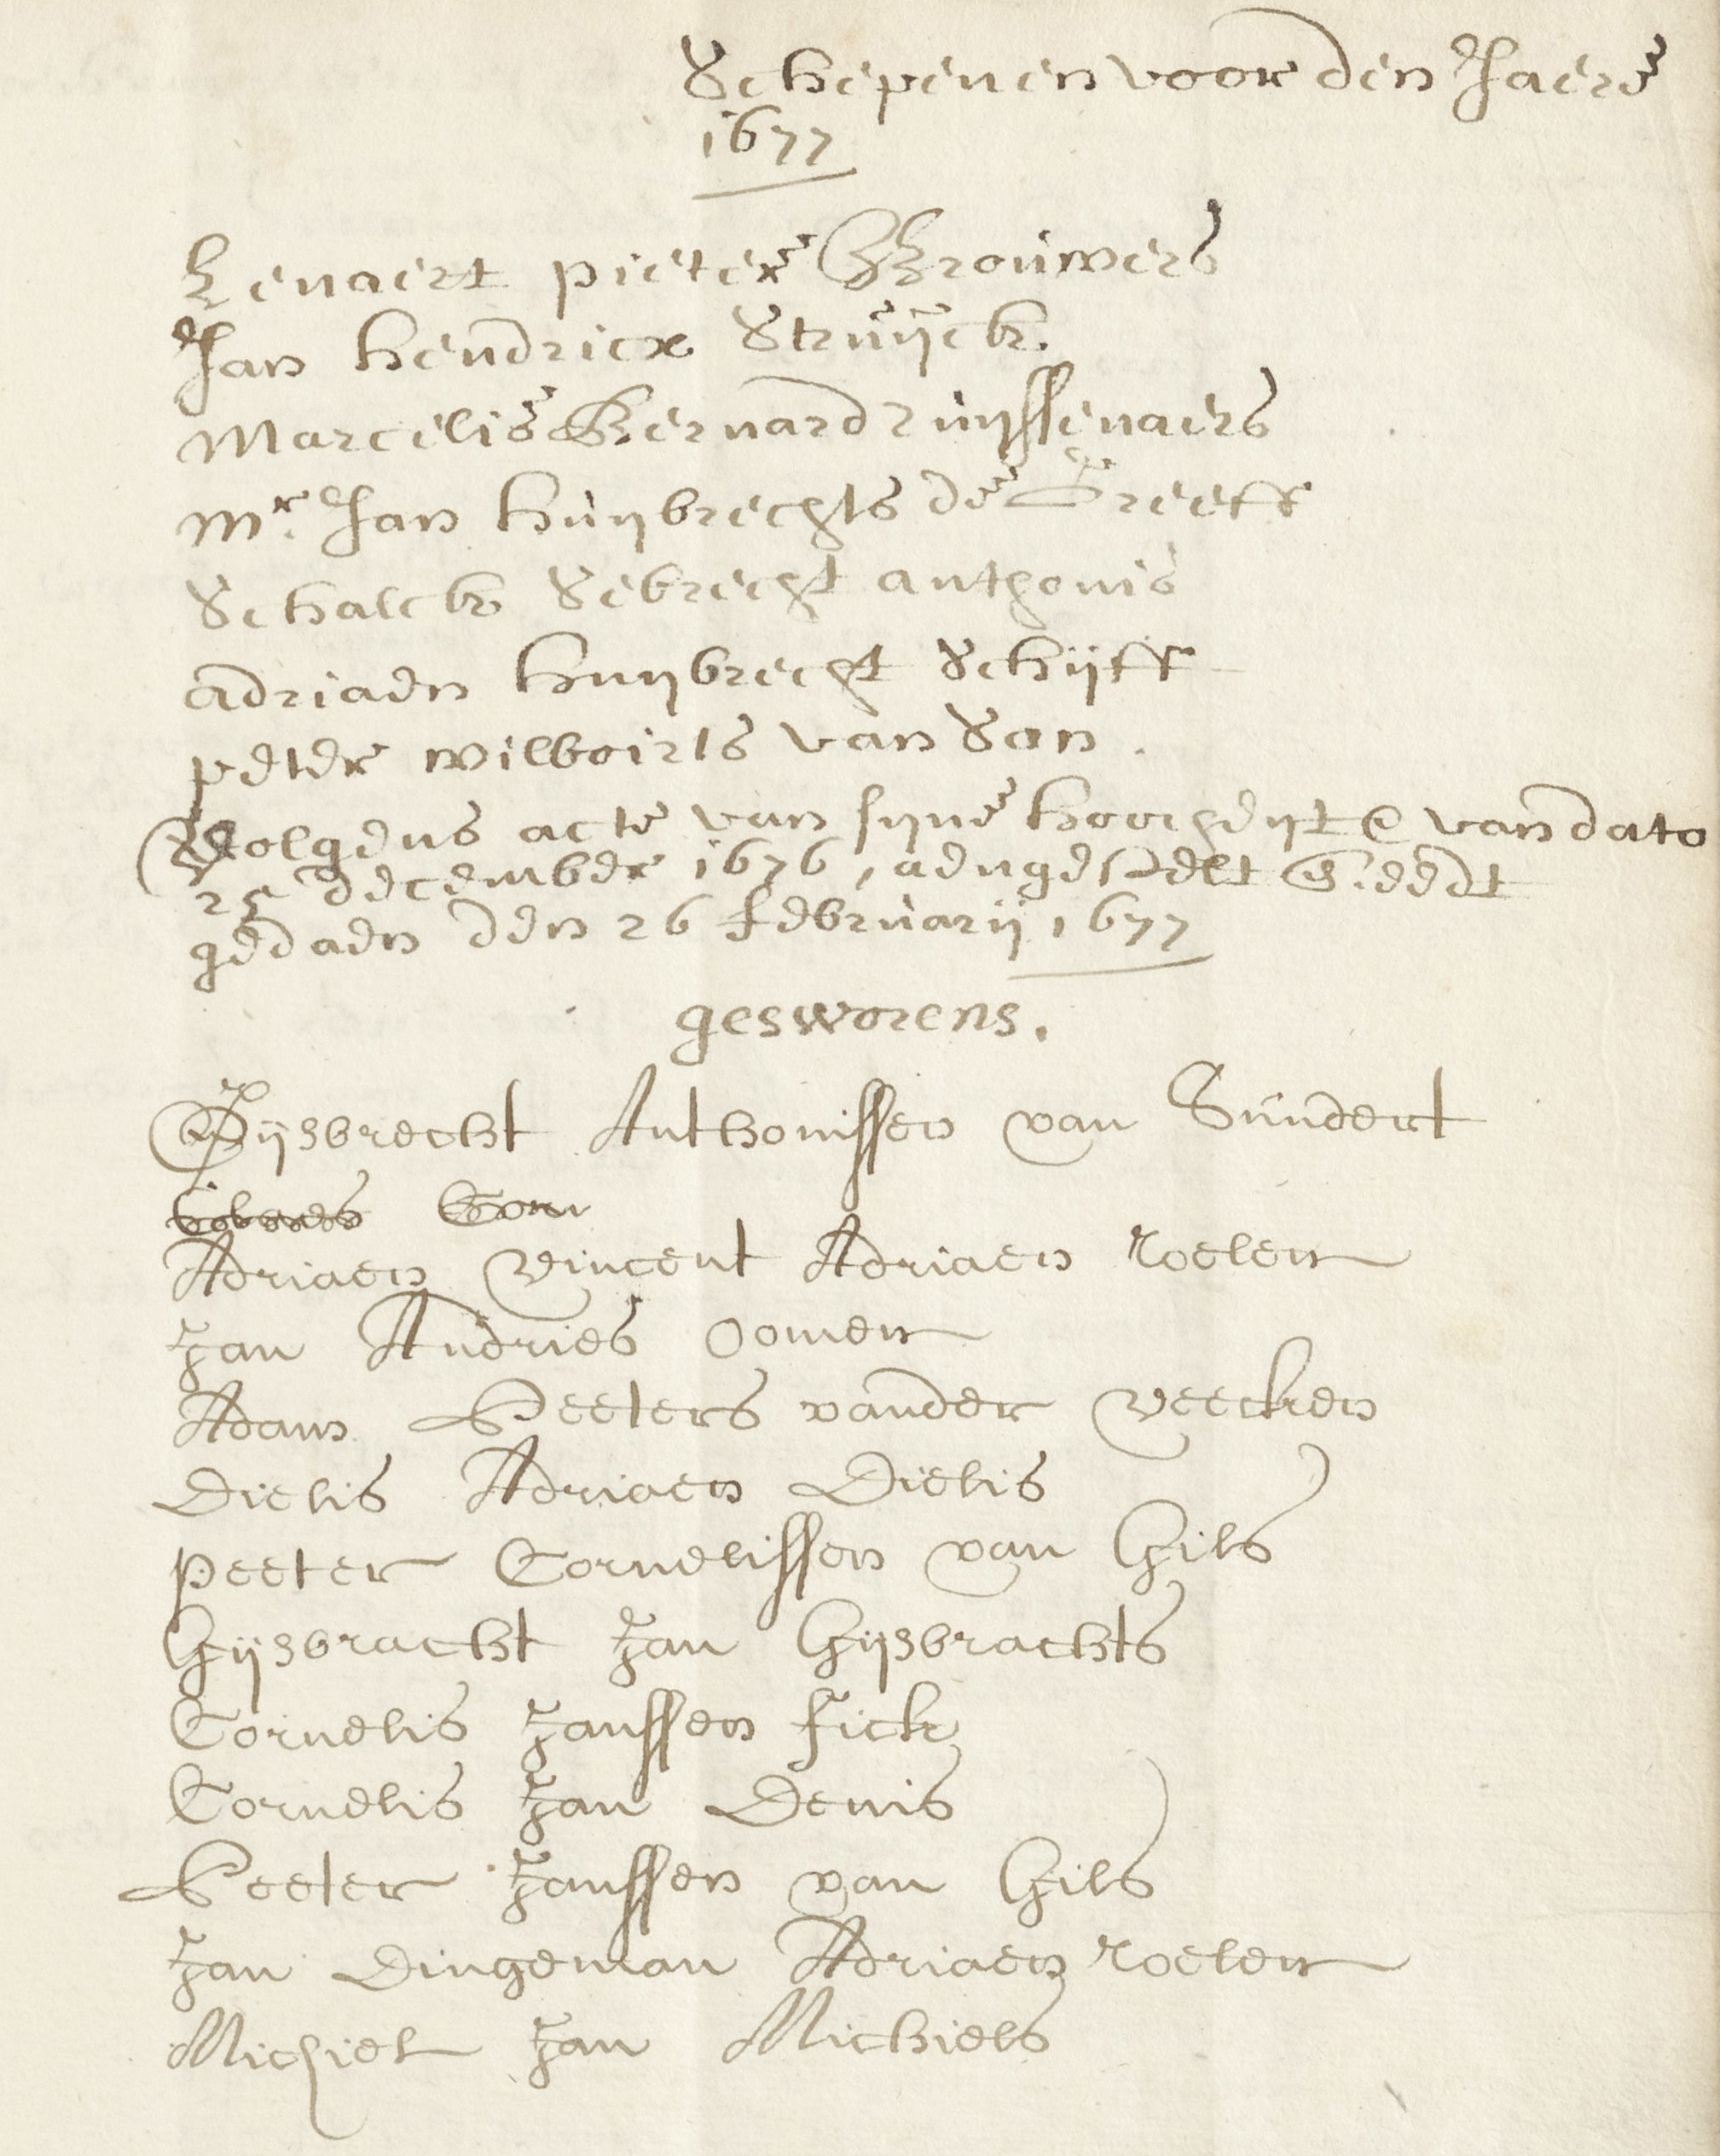 Schepenen voor den Jaere
1677
Lenaert pieter Brouwers
Jan hendricx Struijck
Marcelis Bernard ruijssenaers
Mr. Jan huijbrechts de Greeff
Schalck Sebrecht anthonis
adriaen huijbrecht Schijff
peter wilboirts van Son.
Volgens acte van sijne hoocheijt van dato
25 december 1676, aengestelt Eedt
gedaen den 26 februarij 1677
gesworens.
Gijsbrecht Anthonissen van Sundert
Corn
Adriaen Vincent Adriaen roelen
Jan Andries oomen
Adam Peeters vander veecken
Dielis Adriaen Dielis
peeter Cornelissen van Gils
Gijsbracht Jan Gijsbrachts
Cornelis Janssen fick
Cornelis Jan Denis
Peeter Janssen van Gils
Jan Dingeman Adriaen roelen
Michiel Jan Michiels